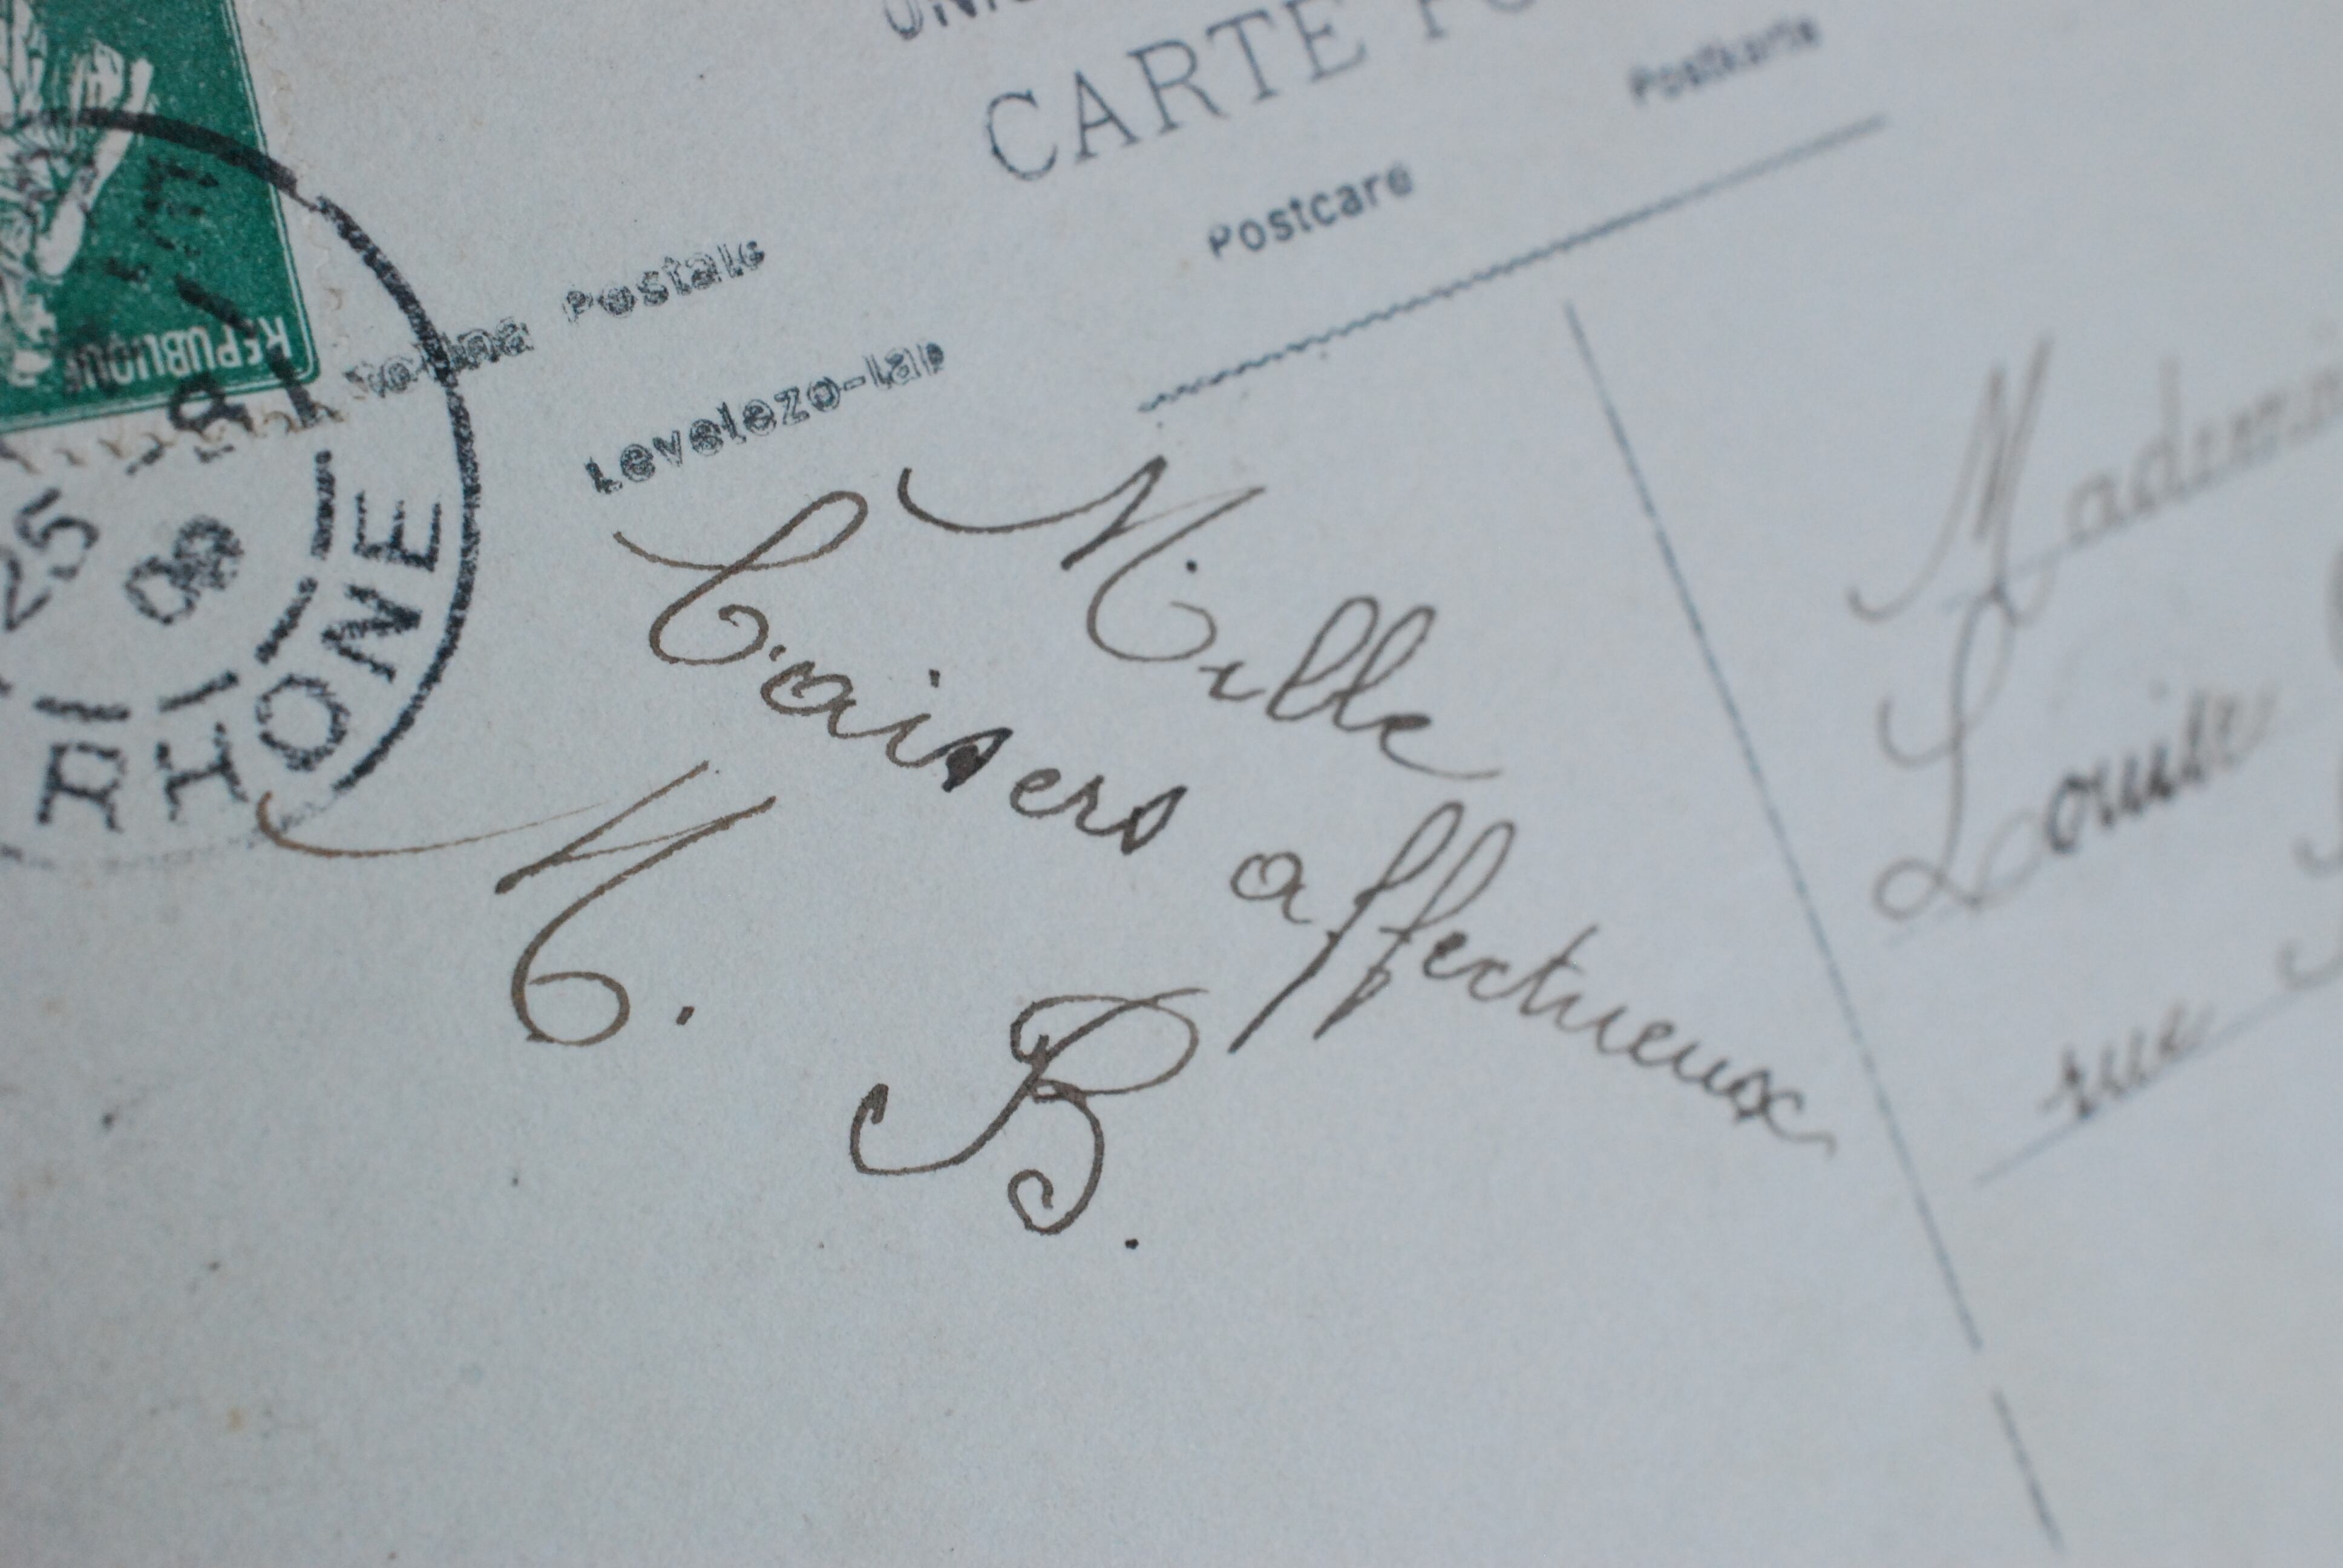 CARTE
Postkarte
Postcare
Postale
Levelezo-lap
REPUBLIQUE
25
09
ONE
Mille
Baisers affectueux
M. B.
Louise
rue